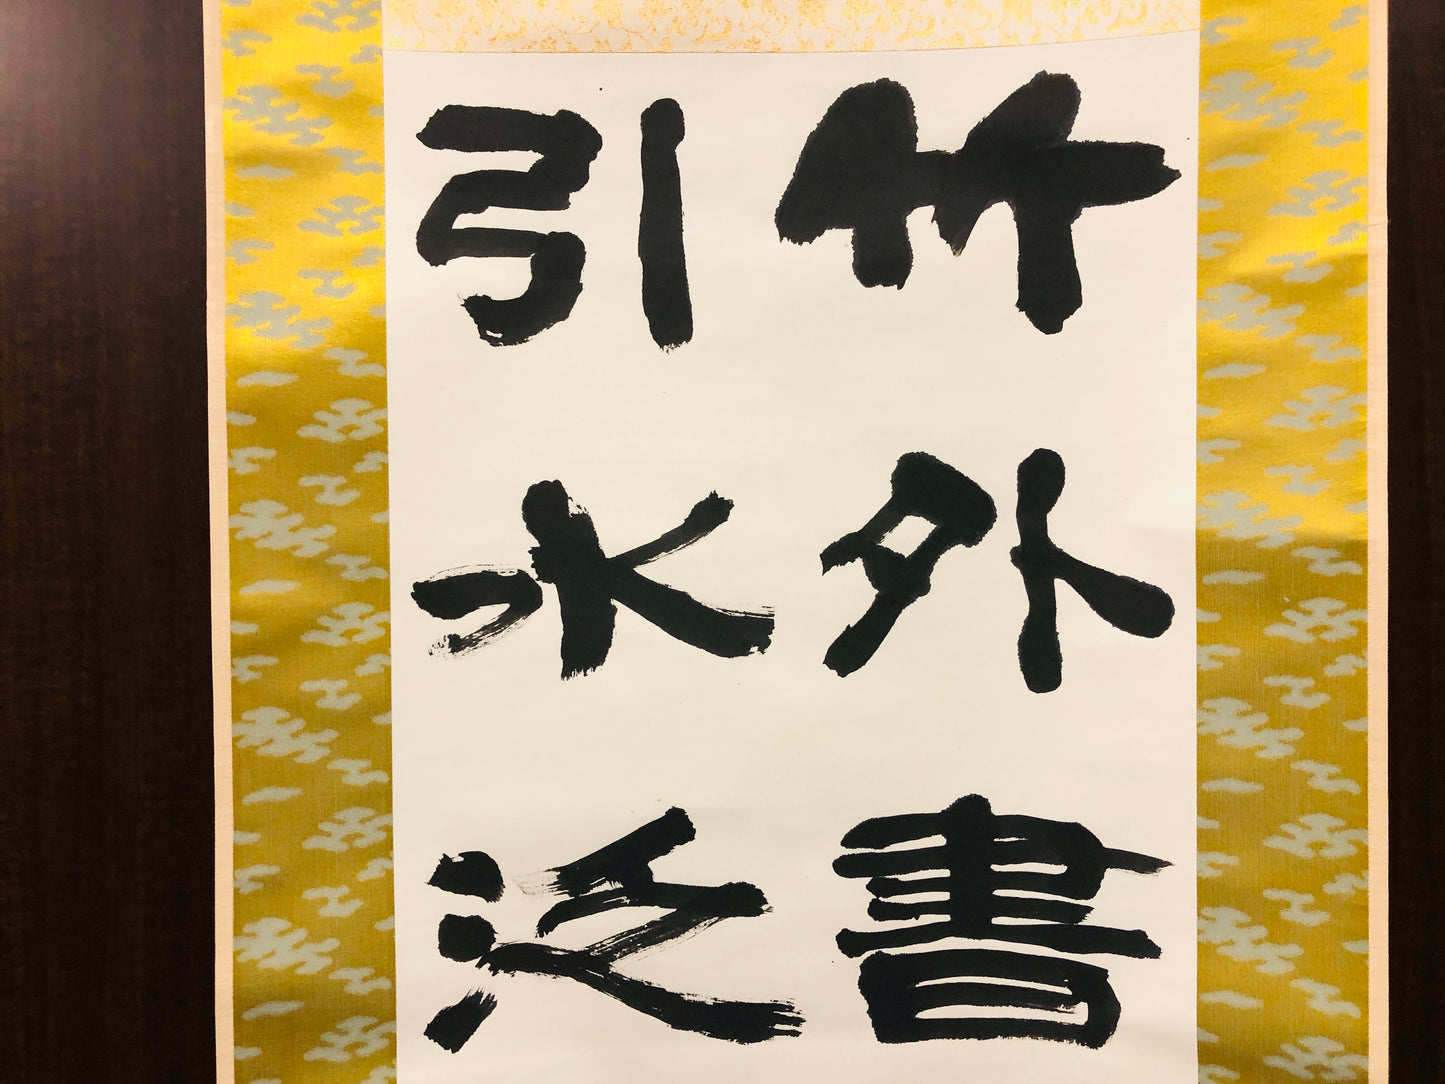 竹外書
引水泛